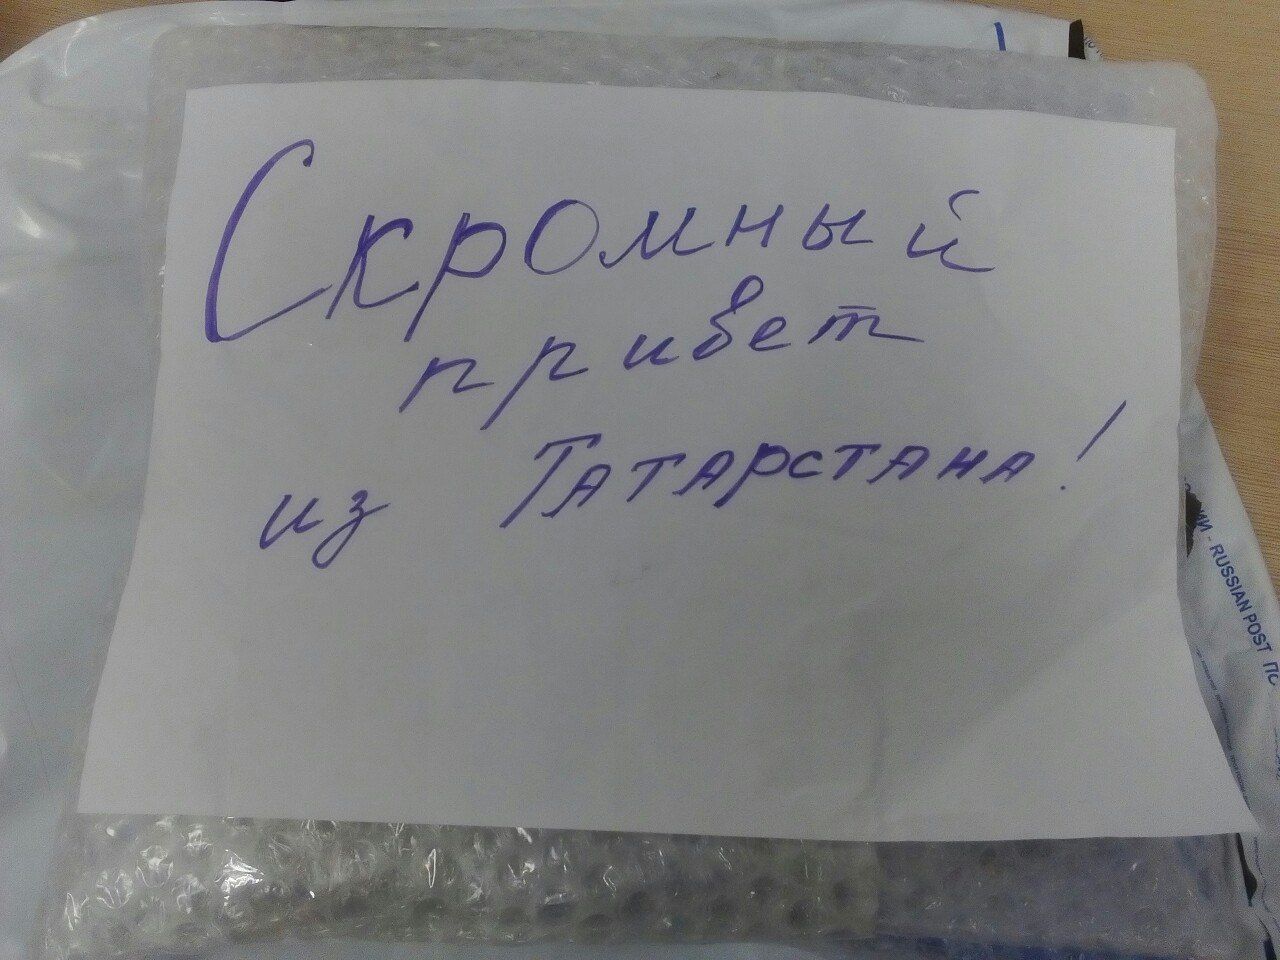 Скромный
привет
из Татарстана!
ИИ - RUSSIAN POST ПО